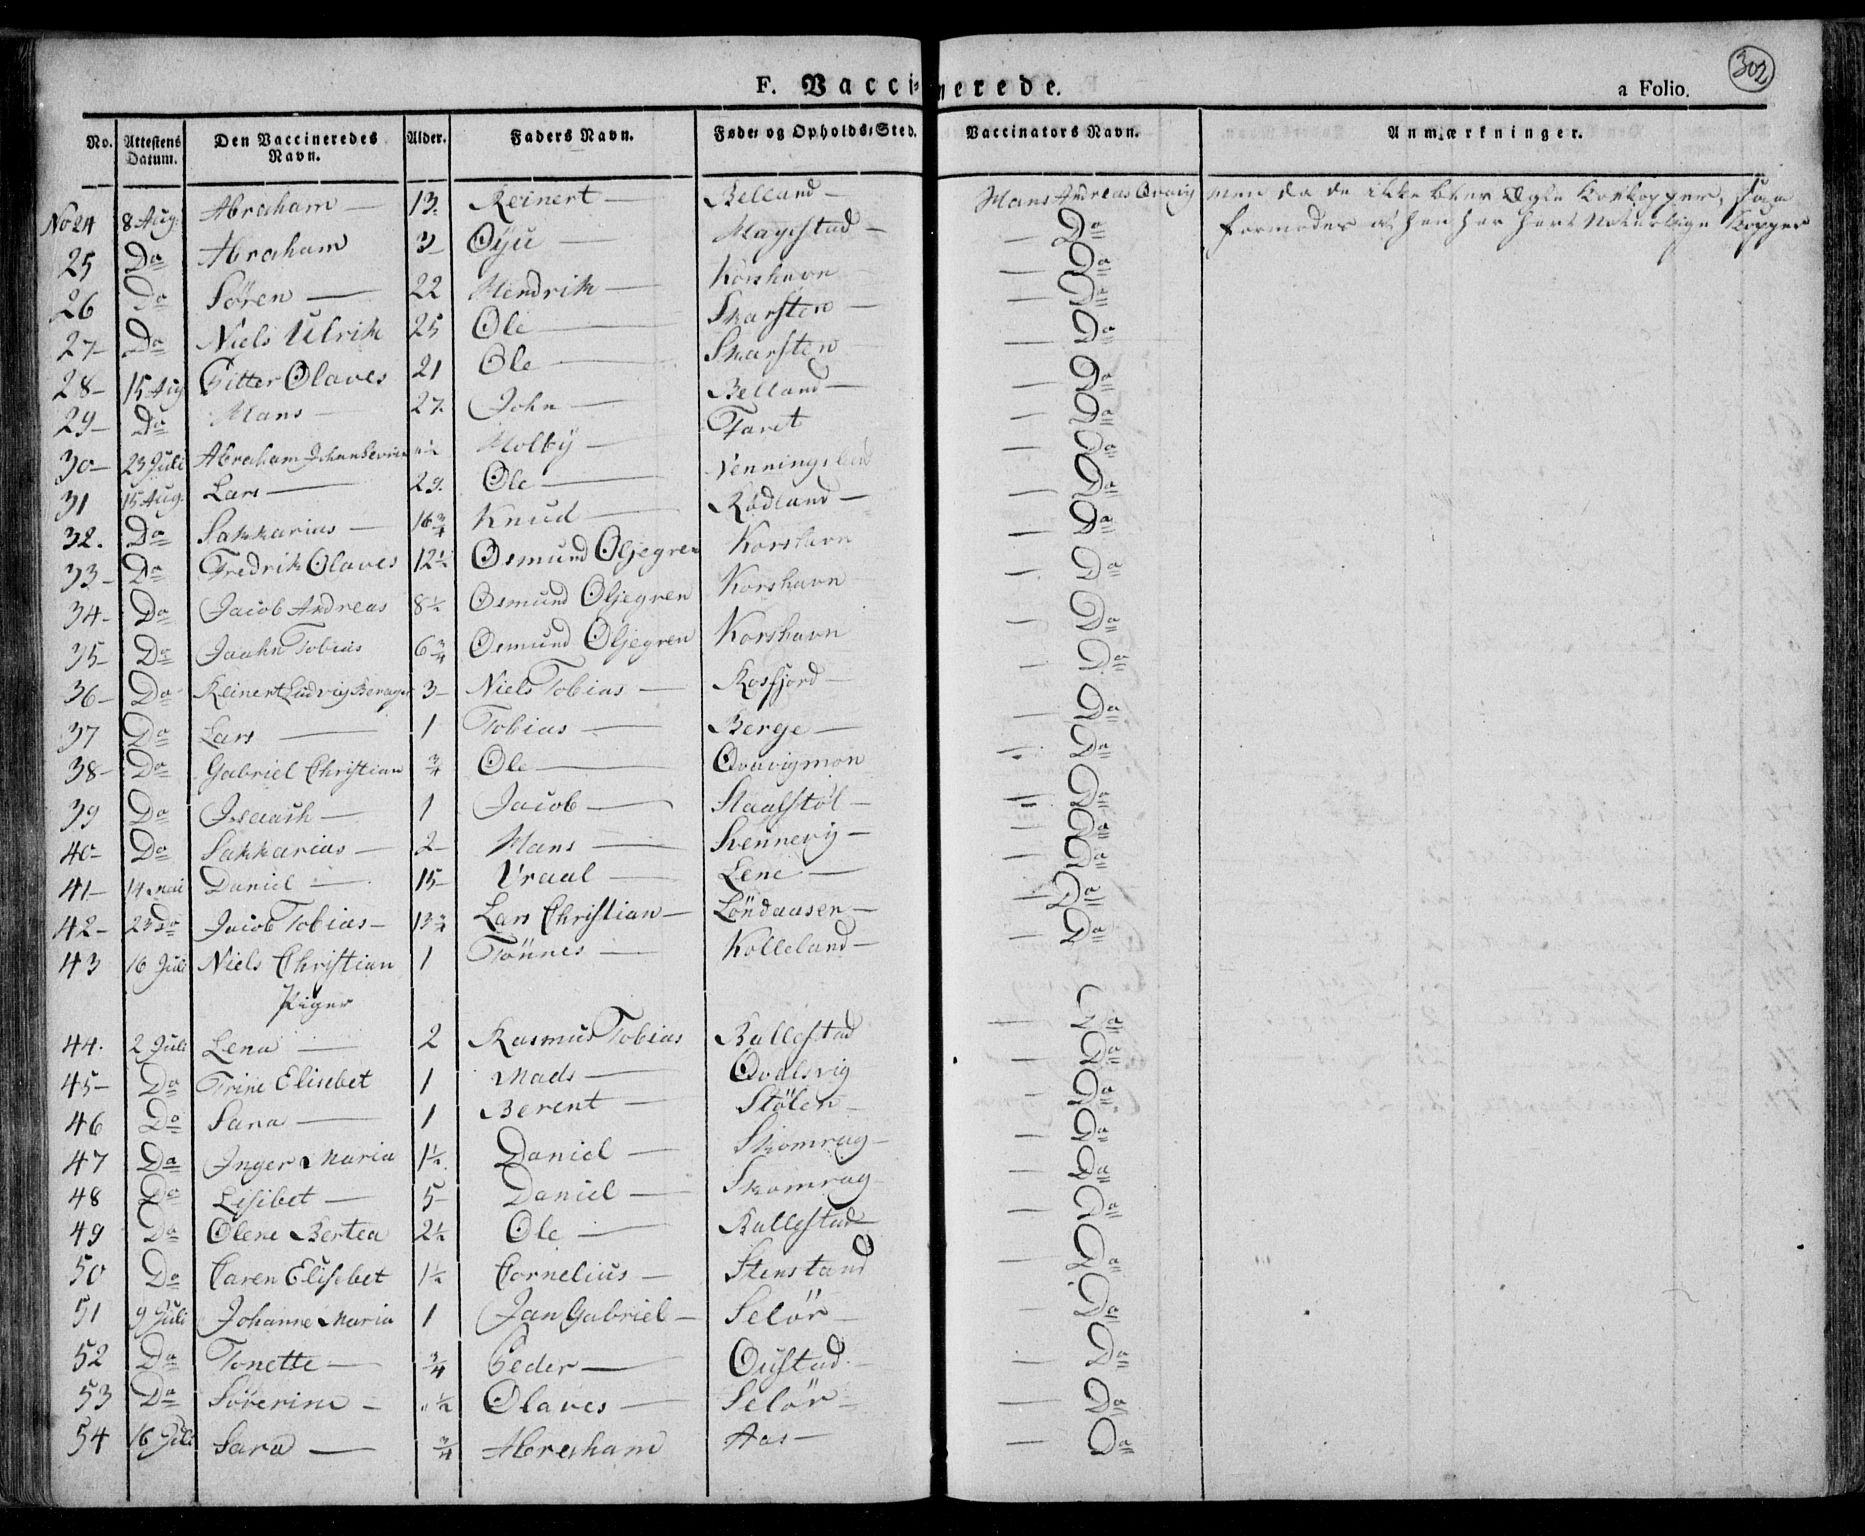 302
F. Vaccinerede.
a Folio.
No. Attestens Datum. Den Vaccineredes Navn. Alder. Faders Navn. Føde- og Opholds-Sted. Vaccinators Navn. Anmærkninger.
No 24 8 Aug. Abraham — 13. Reinert — Belland — Hans Andreas men da de ikke blev Kopper, saa
formodes at han har havt Naturlige Kopper
25 Do Abraham 3 — — — Do
26 Do Søren — 22 Hendrik — Korshavn — Do
27 Do Niels Ulrik 25 Ole — Skarsten — Do
28 15 Aug Gitter Olaves 21 Ole — Skarsten — Do
29 Do Hans — 27 John — Belland — Do
30 23 Juli Abraham Johan Holby — Faret — Do
31 15 Aug. Lars — 29. Ole — — Do
32. Do Sakkarias — 16 3/4 Knud — Rødland — — Do
33 Do Fredrik Olaves 12 1/2 Osmund Oljegren Korshavn — Do
34 Do Jacob Andreas 8 1/2 Osmund Oljegren Korshavn — Do
35 Do Tobias 6 3/4 Osmund Oljegren Korshavn — Do
36 Do Reinert Ludvig 3 Niels Tobias — Rosfjord — — Do
37 Do Lars — 1 Tobias — Berge — — Do
38 Do Gabriel Christian 3/4 Ole — Qvavigmon — Do
39 Do — 1 Jacob — Staalstøl — — Do
40 Do Sakkarias — 2 Hans — Svennevig — — Do
41 14 Mai Daniel — 15 Vraal — Lene — — Do
42 23 Do Jacob Tobias — 13 3/4 Lars Christian — Löndausen — — Do
43 16 Juli Niels Christian 1 Tönnes — Kolleland — — Do
Piger
44. 2 Juli Lena — 2 Rasmus Tobias Ballestad — Do
45 Do Trine Elisebet 1 Mads — Qvalsvig — Do
46 Do Sara — 1 Berent — Stölen — — Do
47 Do Inger Maria 1 1/2 Daniel — Skomrag — — Do
48 Do Lisebet — 5 Daniel — Skomrag — — Do
49 Do Olene Bertea 2 1/2 Ole — Ballestad — Do
50 Do Caren Elisebet 1 1/2 Cornelius — Stensland — Do
51 9 Juli Johanne Maria 1 Jan Gabriel — Selör — — Do
52 Do Tonette — 3/4 Peder — Oustad. — — Do
53 Do Söverine — 1/2 Olaves — Selör — — Do
54 16 Juli Sara — 3/4 Abraham Aas — — Do